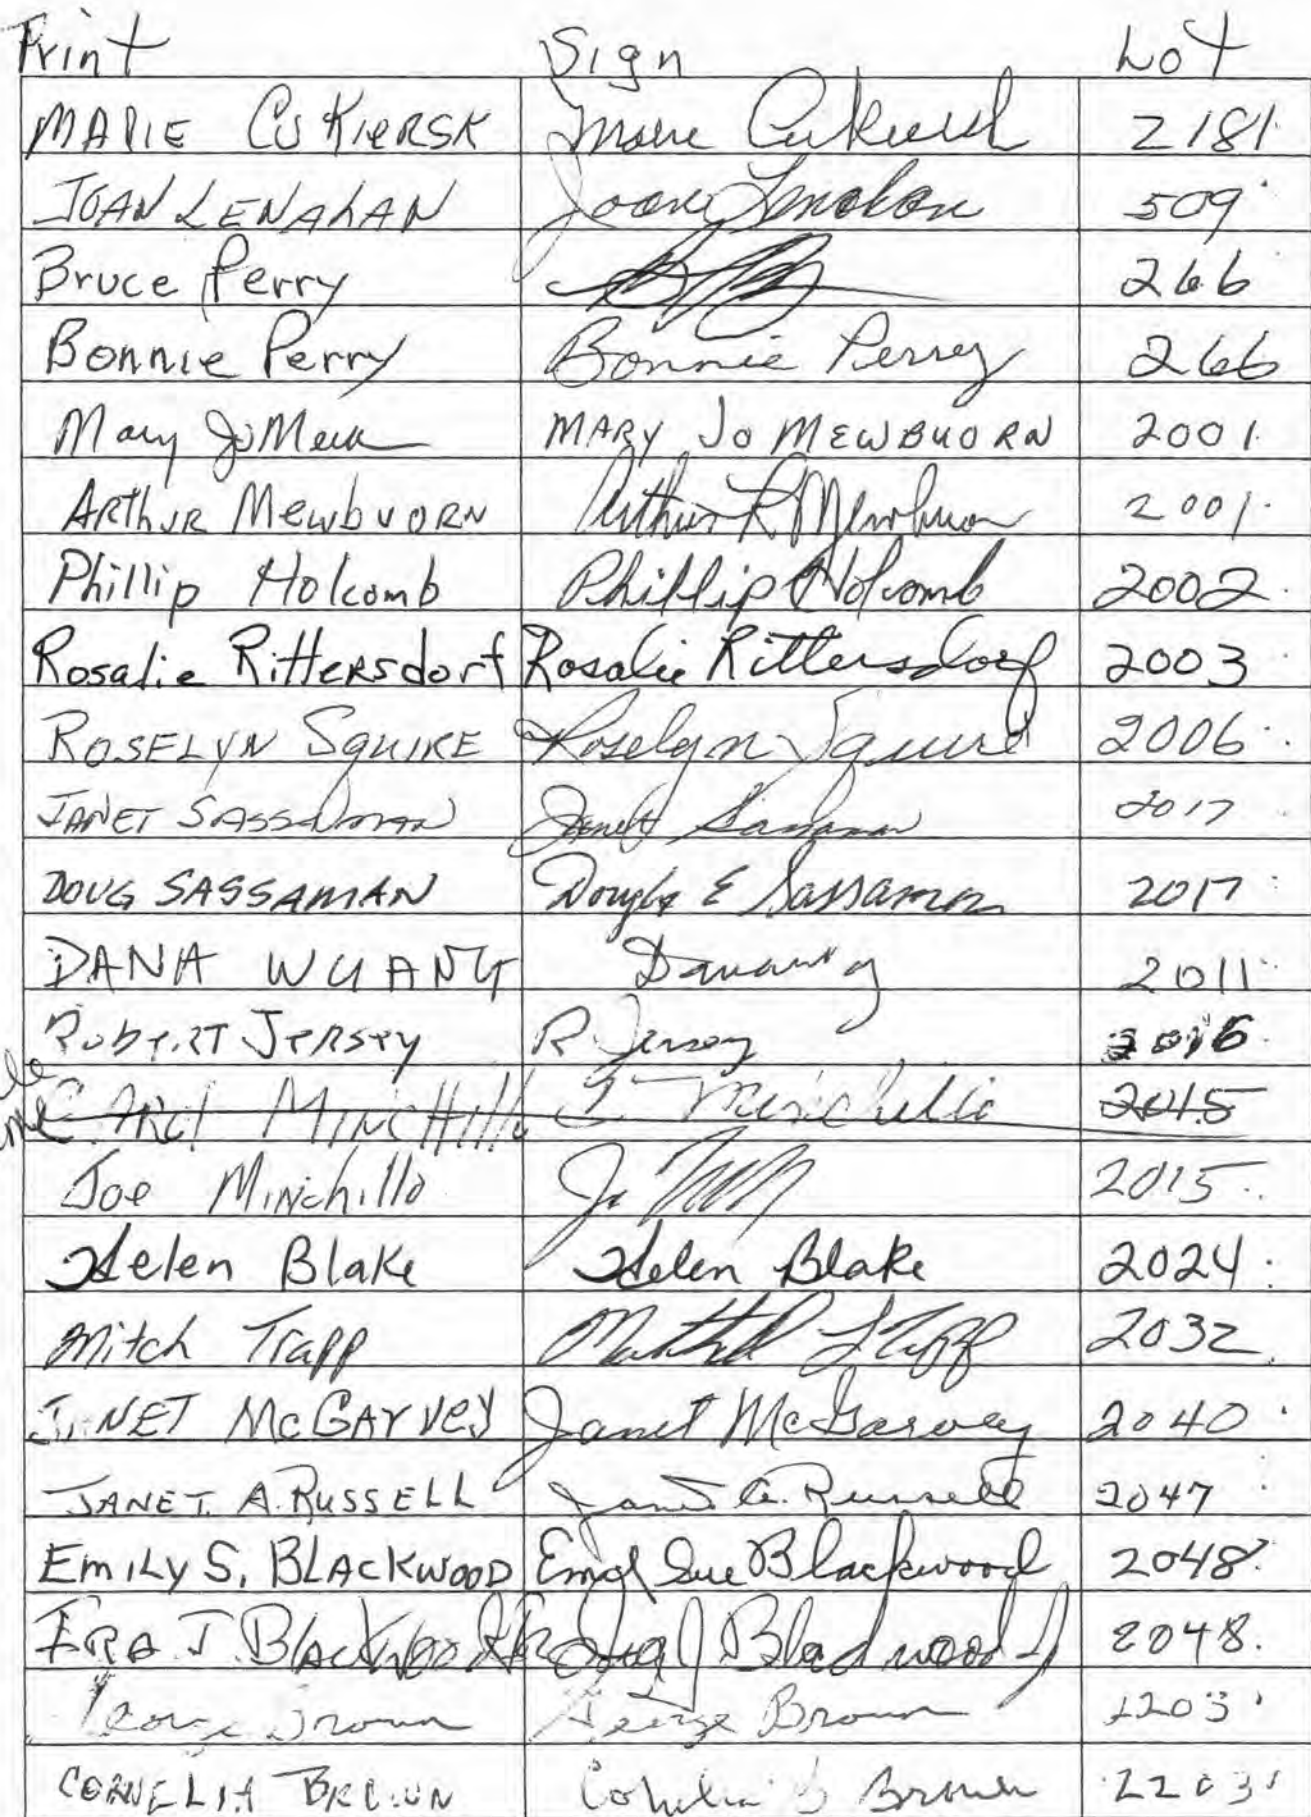 Print Sign Lot
MARIE CUKIERSK Marie Cukiersk 2181
JOAN LENAHAN Joan Lenahan 509
Bruce Perry 266
Bonnie Perry Bonnie Perry 266
Mary Jo MARY JO MEWBUORN 2001
ARTHUR MEWBUORN Arthur R Mewbuorn 2001
Phillip Holcomb Phillip Holcomb 2002
Rosalie Rittersdorf Rosalie Rittersdorf 2003
ROSELYN SQUIRE Roselyn Squire 2006
JANET SASSAMAN Janet Sassaman 2017
DOUG SASSAMAN Douglas E Sassaman 2017
DANA WUANG 2011
Robert Jersey R Jersey 2016
Carol Minchillo C. Minchillo 2015
Joe Minchillo 2015
Helen Blake Helen Blake 2024
Mitch Trapp 2032
JANET McGARVEY Janet McGarvey 2040
JANET A. RUSSELL Janet A. Russell 2047
EMILY S. BLACKWOOD Emily Sue Blackwood 2048
IRA J. Blackwood Blackwood 2048
George Brown George Brown 2203
CORNELIA BROWN Cornelia Brown 2203